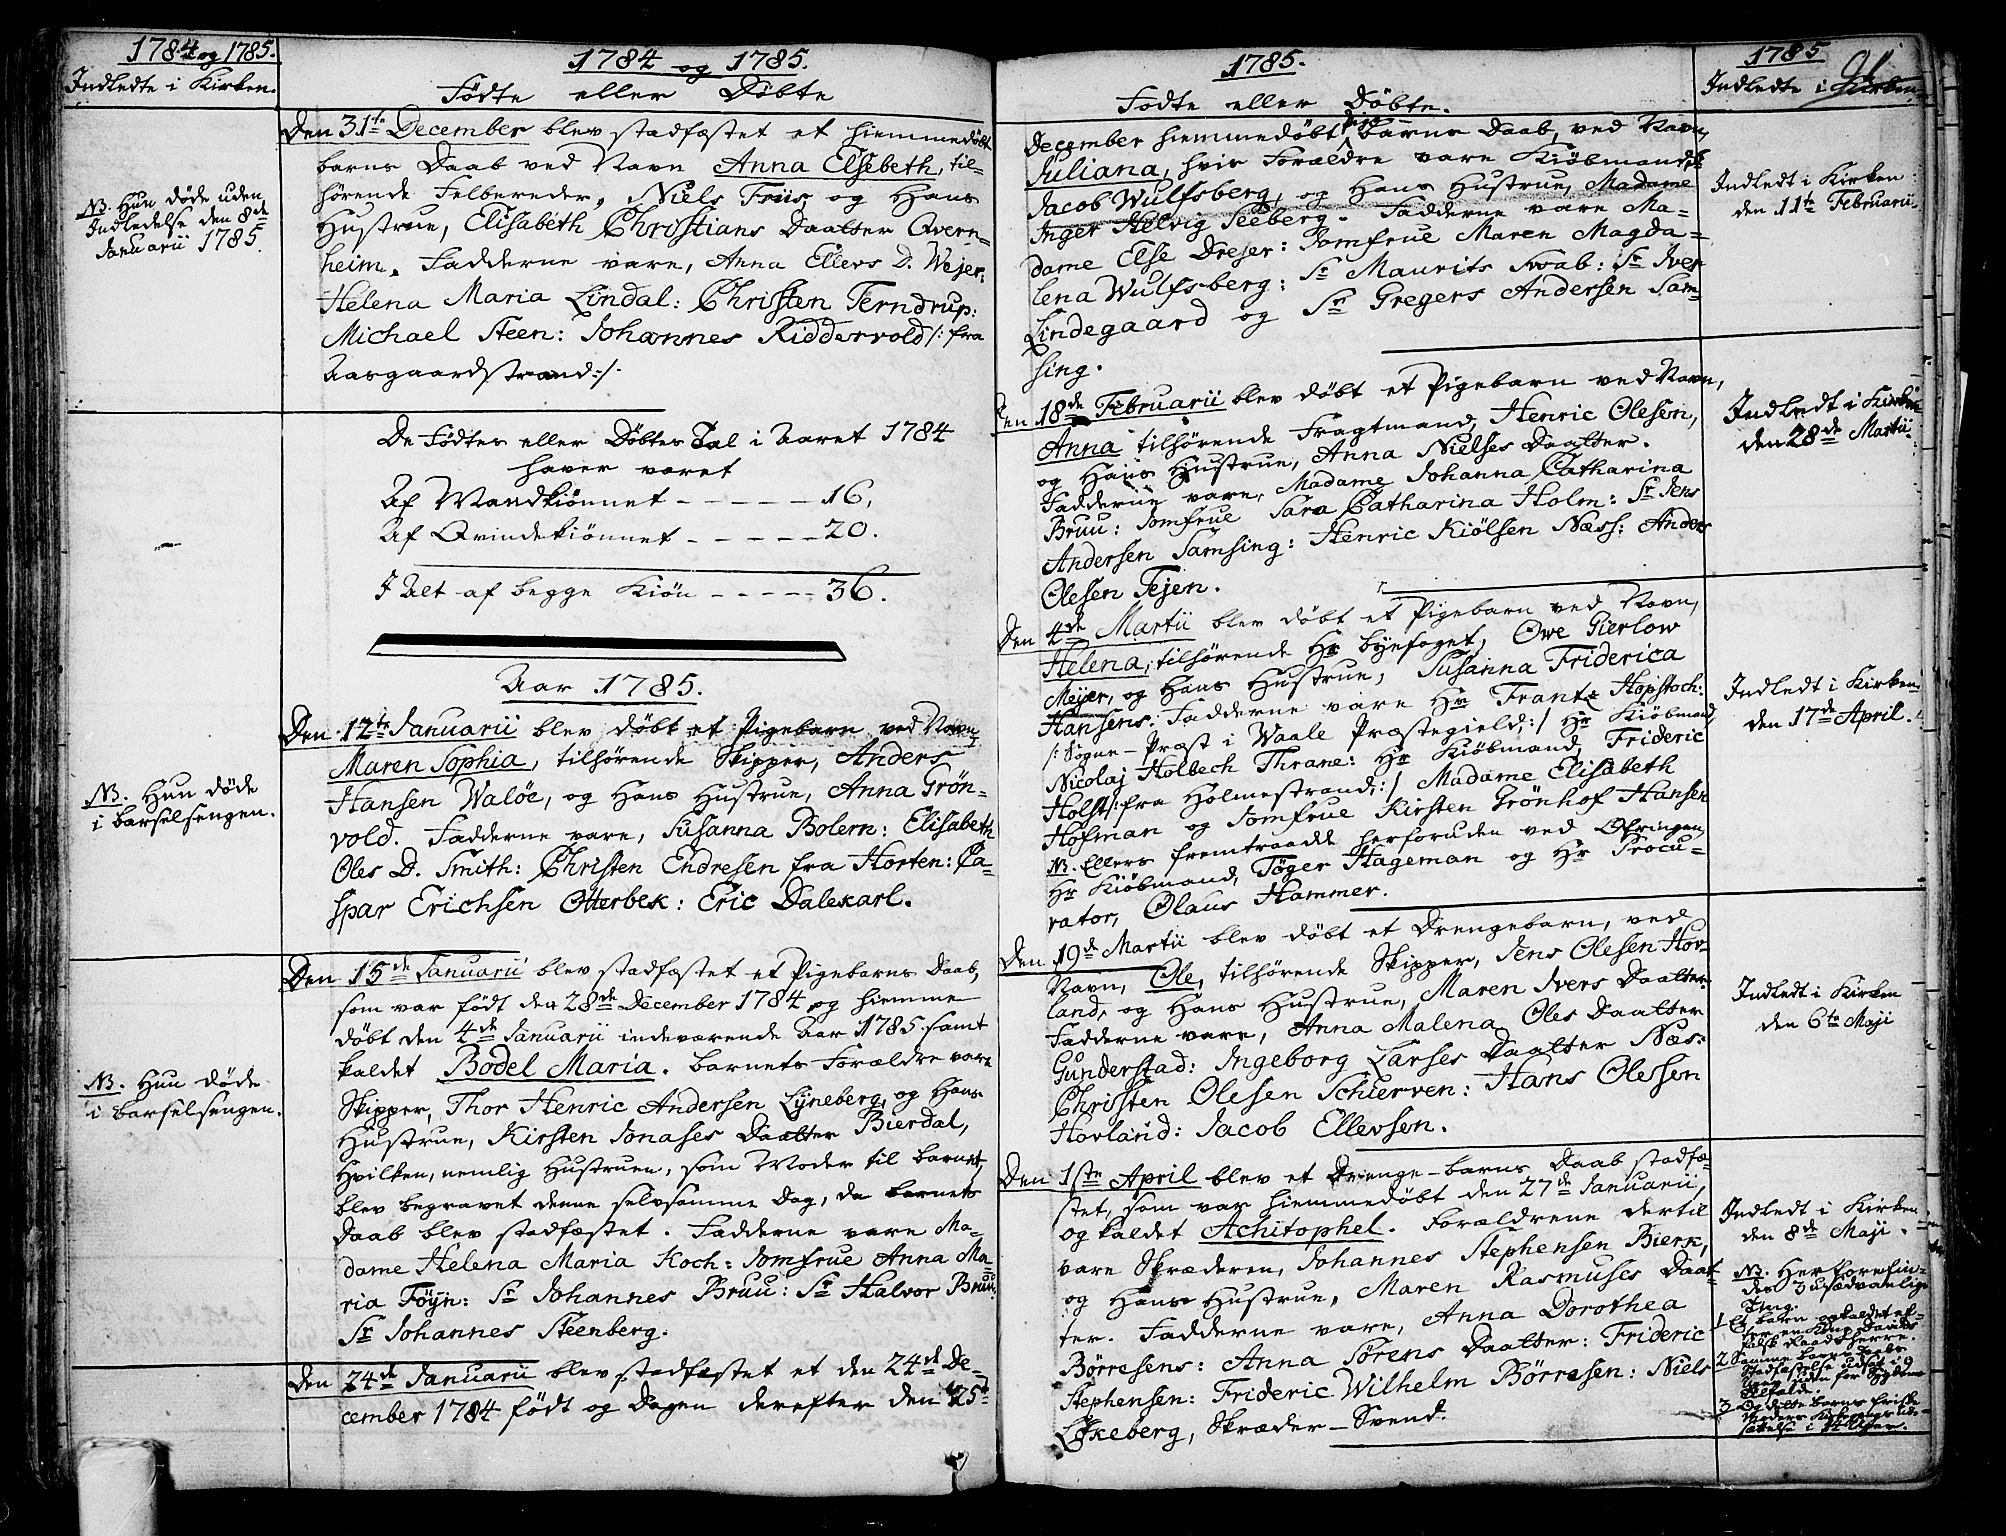 1784 og 1785.
Indledte i Kirken.
NB. Hun døde uden
Indledelse den 8de
Januarii 1785.
NB. Hun døde
i barselsengen.
NB. Hun døde
i barselsengen.
1784 og 1785.
Fødte eller Døbte
Den 31te December blev stadfæstet et hiemmedøbt
barns Daab ved Navn Anna Elsebeth, til-
hørende Felbereder, Niels Friis og Hans
Hustrue, Elisabeth Christians Daatter Qvern-
heim. Fadderne vare, Anna Ellevs D. Wejer:
Helena Maria Lindal: Christen Terndrup:
Michael Steen: Johannes Riddervold /: fra
Aasgaardstrand :/.
De Fødtes eller Døbtes Tal i Aaret 1784
haver været
Af Mandkiønnet - - - - - 16,
Af Qvindekiønnet - - - - - 20.
I Alt af begge Kiøn - - - - - 36.
Aar 1785.
Den 12te Januarii blev døbt et Pigebarn ved Navn,
Maren Sophia, tilhørende Skipper, Anders
Hansen Waløe, og Hans Hustrue, Anna Grön-
vold. Fadderne vare, Susanna Bolern: Elisabeth
Oles D. Smith: Christen Endresen fra Horten: Ca-
spar Erichsen Otterbek: Eric Dalekarl.
Den 15de Januarii blev stadfæstet et Pigebarns Daab,
som var født den 28de December 1784 og hiemme
døbt den 4de Januarii indeværende Aar 1785 samt
kaldet Bodel Maria. Barnets Forældre vare
Skipper, Thor Henric Andersen Lyneberg, og Hans
Hustrue, Kirsten Jonases Daatter Bierdal,
Hvilken, nemlig Hustruen, som Moder til barnet,
blev begravet denne selvsamme Dag, da barnets
Daab blev stadfæstet. Fadderne vare Ma-
dame Helena Maria Koch: Jomfrue Anna Ma-
ria Föyn: Sr Johannes Bruu: Sr Halvor Bruu:
Sr Johannes Steenberg.
Den 24de Januarii blev stadfæstet et den 24de De-
cember 1784 født og Dagen derefter den 25te
1785.
Fødte eller Døbte.
December hiemmedøbt Pige-barns Daab, ved Navn,
Juliana, hvis Forældre vare Kiøbmand Sr
Jacob Wulfsberg, og Hans Hustrue, Madame
Inger Helvig Seeberg. Fadderne vare Ma-
dame Else Drejer: Jomfrue Maren Magda-
lena Wulfsberg: Sr Maurits Svab: Sr Iver
Lindegaard og Sr Gregers Andersen Sam-
sing.
Den 18de Februarii blev døbt et Pigebarn ved Navn,
Anna tilhørende Fragtmand, Henric Olesen,
og Hans Hustrue, Anna Nielses Daatter.
Fadderne vare, Madame Johanna Catharina
Bruu: Jomfrue Sara Catharina Holm: Sr Jens
Andersen Samsing: Henric Kiölsen Næss: Anders
Olesen Tejen.
Den 4de Martii blev døbt et Pigebarn ved Navn,
Helena, tilhørende Hr byefoget, Owe Gierlow
Meyer, og Hans Hustrue, Susanna Friderica
Hansens: Fadderne vare Hr Frantz Hopstoch:
/: Sogne-Præst i Waale Præstegield, :/ Hr Kiøbmand,
Nicolaj Holbech Thrane: Hr Kiøbmand, Frideric
Holst /: fra Holmestrand, :/ Madame Elisabeth
Hofman og Jomfrue Kirsten Grönhof Hansen
NB. Ellers fremtraadde herforuden ved Ofringen,
Hr Kiøbmand, Töger Hageman og Hr Procu-
rator, Olaus Hammer.
Den 19de Martii blev døbt et Drengebarn, ved
Navn, Ole, tilhørende Skipper, Jens Olesen Hov-
land, og Hans Hustrue, Maren Ivers Daatter
Fadderne vare, Anna Malena Oles Daatter
Gunderstad: Ingeborg Larses Daatter Næs:
Christen Olesen Schierven: Hans Olessen
Hovland: Jacob Ellevsen.
Den 1ste April blev et Drenge-barns Daab stadfæ-
stet, som var hiemmedøbt den 27de Januarii,
og kaldet Achitophel. Forældrene dertil
vare Skræderen, Johannes Stephensen Bierk,
og Hans Hustrue, Maren Rasmuses Daat-
ter. Fadderne vare, Anna Dorothea
Börresens: Anna Sørens Daatter: Frideric
Stephensen: Frideric Wilhelm Börresen: Niels
Lökeberg, Skræder-Svend.
1785
Indledte i Kirken
Indledt i Kirken
den 11te Februarii.
Indledt i Kirken
den 28de Martii.
Indledt i Kirken
den 17de April.
Indledt i Kirken
den 6te Maji
Indledt i Kirken
den 8de Maji.
NB. Her forefin-
des 3 usædvanlige
Ting.
1 Et barn opkaldet ef-
ter en Kong Davids
falsk Raadsherre.
2 Samme barns Daabs
Stadfæstelse udsat i 9
Uger uden for Sygdoms
Tilfælde.
3 Og dette barns friske
Moders Kirkegangs ud-
sættelse i 14 Uger.